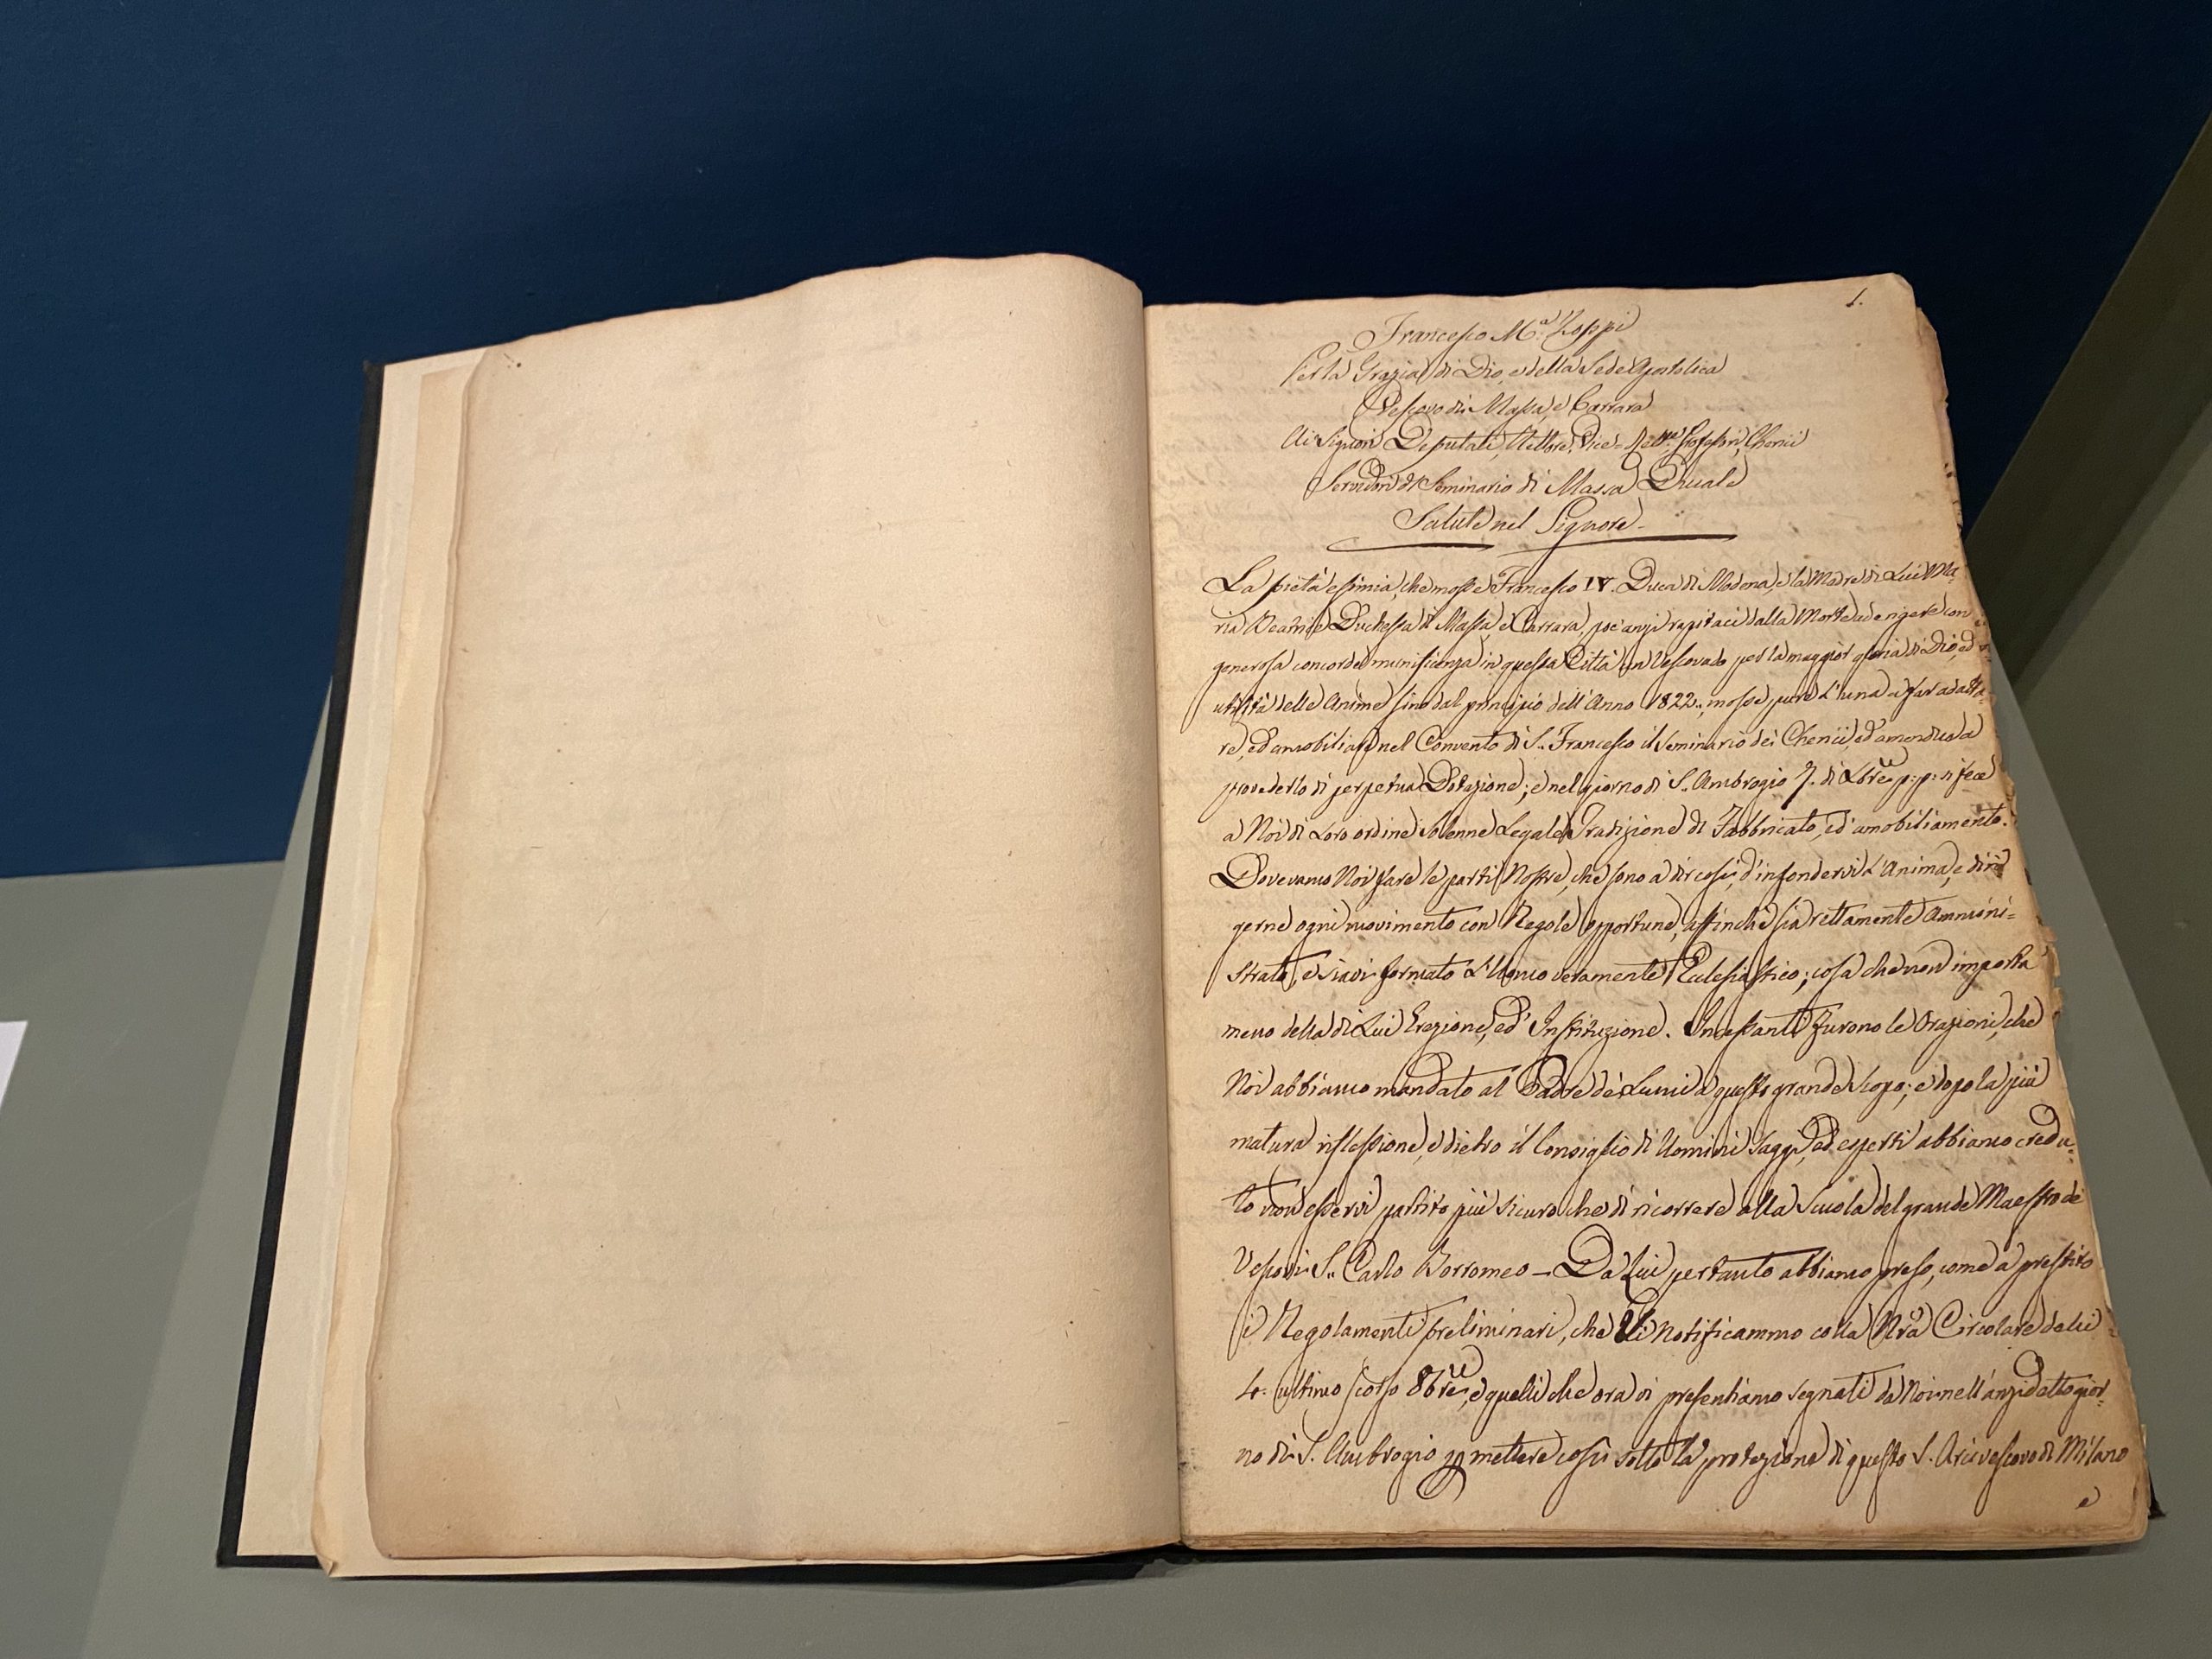 1.
Francesco M.a Zoppi
Per la Grazia di Dio, e della Sede Apostolica
Vescovo di Massa, e Carrara
Ai Signori Deputati, Rettore, Vice-Rett.e Professori, Cherici
Servidori del Seminario di Massa Ducale
Salute nel Signore.
La pietà esimia, che mosse Francesco IV. Duca di Modena, e la Madre di Lui Ma-
ria Beatrice Duchessa di Massa e Carrara, poc'anzi rapitaci dalla Morte ad erigere con
generosa concorde munificenza in questa Città un Vescovado per la maggior gloria di Dio, ed
utilità delle Anime sino dal principio dell'Anno 1822., mosse pure l'una a far adatta-
re, ed amobiliare nel Convento di S. Francesco il Seminario dei Cherici, ed amendue a
provederlo di perpetua Dotazione; e nel giorno di S. Ambrogio 7. di Xbre p:p: si fece
a Noi di Loro ordine solenne Legale Tradizione di Fabbricato, ed amobiliamento.
Dovevamo Noi fare le parti Nostre, che sono a dir così, d'infondervi l'Anima, e diri
gerne ogni movimento con Regole opportune, affinchè sia rettamente Ammini=
strato, e siavi formato l'Uomo veramente Eclesiastico; cosa che non importa
meno della di Lui Erezione, ed Instituzione. Incessanti furono le Orazioni, che
Noi abbiamo mandato al Padre de' Lumi a questo grande scopo; e dopo la più
matura riflessione, e dietro il Consiglio di Uomini saggi, ed esperti abbiamo credu=
to non esservi partito più sicuro che di ricorrere alla Scuola del grande Maestro de'
Vescovi S. Carlo Borromeo – Da Lui pertanto abbiamo preso, come a prestito
i Regolamenti preliminari, che Vi notificammo colla Nra Circolare delli
4. ultimo scorso 8bre, e quelli che ora vi presentiamo segnati da Noi nell'anzidetto gior-
no di S. Ambrogio mettere così sotto la protezione di questo S. Arcivescovo di Milano
e